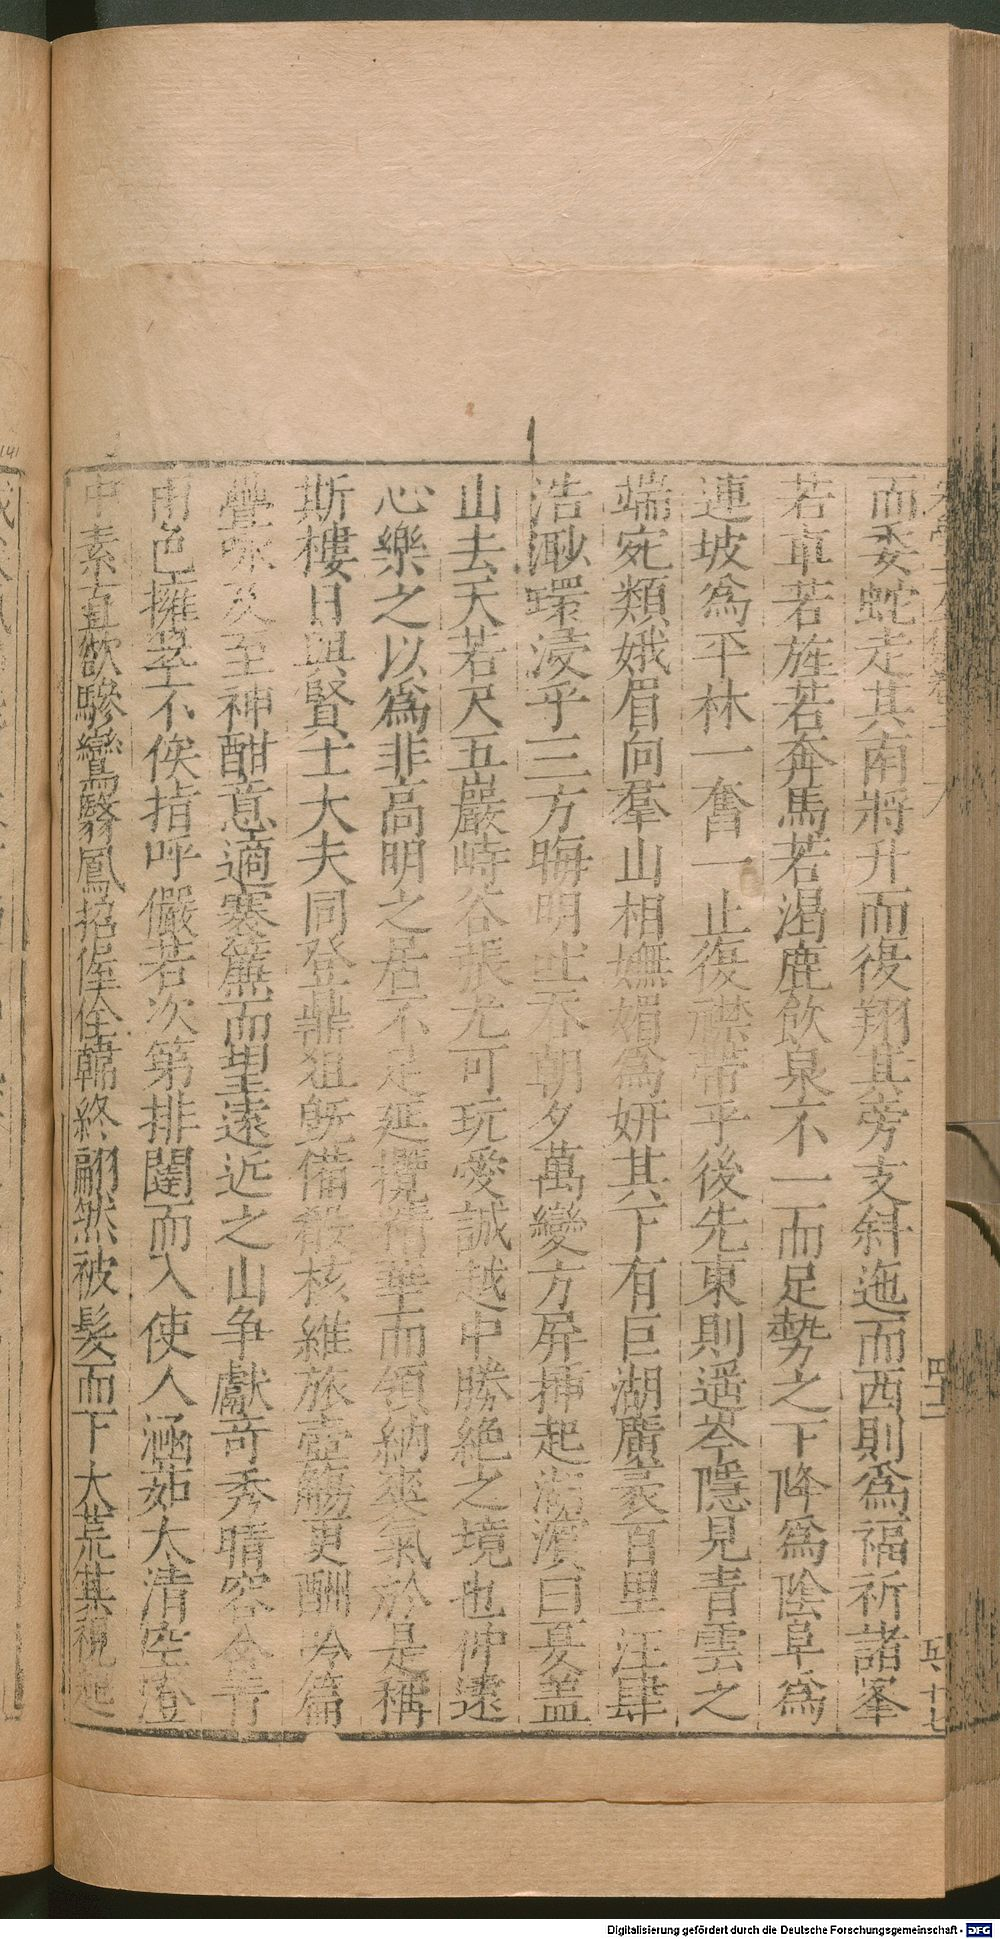 而委蛇走其南將升而復翔其旁支斜迤而西則爲福祈諸峯
若車若旌若奔馬若渴鹿飲泉不一而足勢之下降爲陰阜爲
連坡爲平林一奮一止復襟帶乎後先東則遥岑隱見青雲之
端宛類娥眉向羣山相嫵媚爲妍其下有巨湖廣袤百里汪肆
浩渺環浸乎三方晦明吐吞朝夕萬變方屏揷起湖濱曰夏蓋
山去天若尺五巖峙谷張尤可玩愛誠越中勝絶之境也仲遠
心樂之以爲非高明之居不足延攬精華而領納爽氣於是稱
斯樓日與賢士大夫同登鼎俎旣備殽核維旅壺觴更酬吟篇
疊咏及至神酣意適褰簾而望遠近之山争獻奇秀晴容含青
雨色擁翠不俟指呼儼若次第排闥而入使人涵茹太清空澄
中素直欲驂鸞翳鳳招偓佺韓終翩然被髮而下大荒其視起
四十二
十七
Digitalisierung gefördert durch die Deutsche Forschungsgemeinschaft - DFG